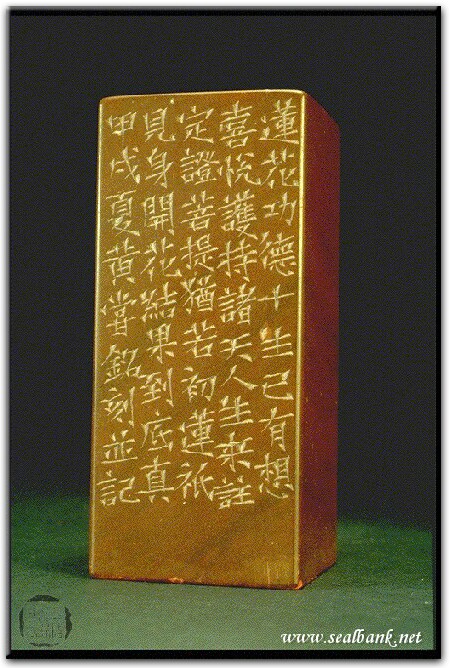 蓮花功德十生已有想
喜悅護持諸天人生來註
定證菩提猶若初蓮祇
見身開花結果到底真
甲戌夏黃嘗銘刻並記
www.sealbank.net